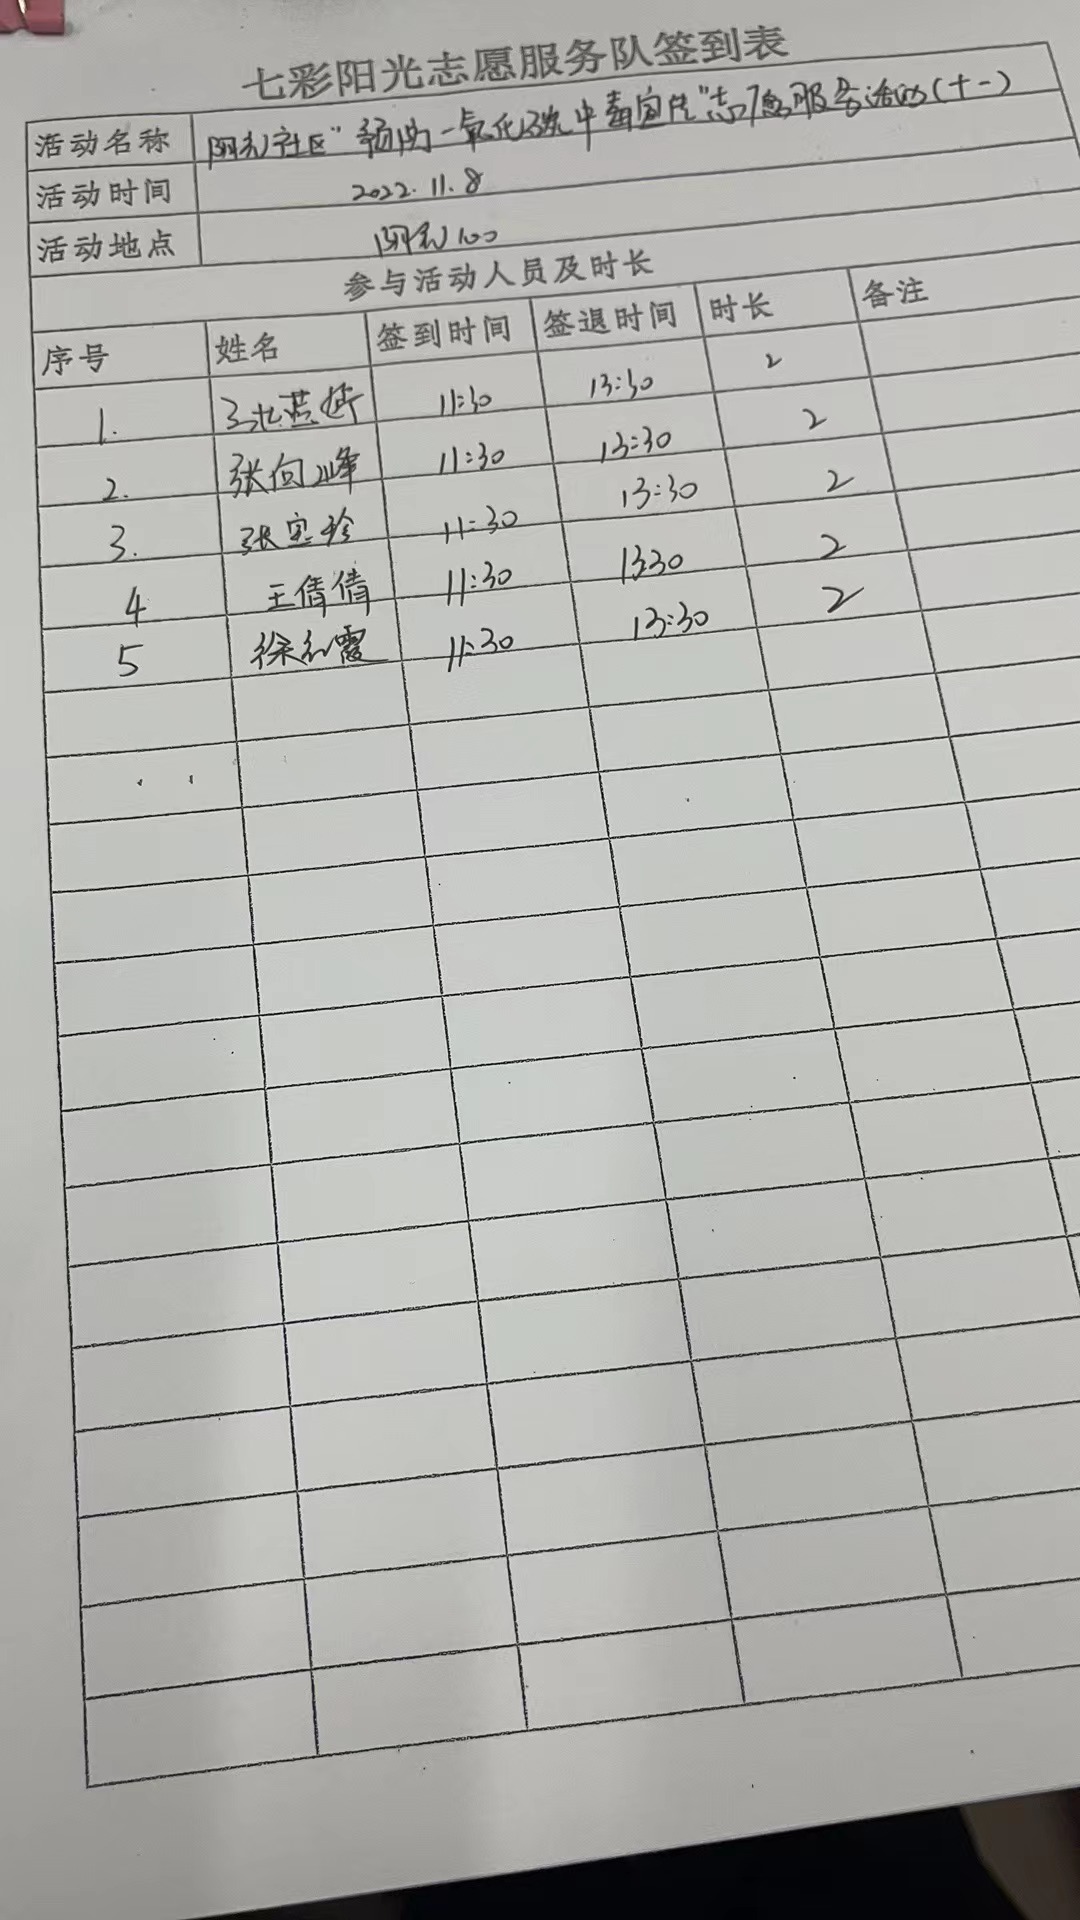 七彩阳光志愿服务队签到表
活动名称 阳光社区"预防一氧化碳中毒宣传"志愿服务活动(十一)
活动时间 2022.11.8
活动地点 阳光100
参与活动人员及时长
序号 姓名 签到时间 签退时间 时长 备注
1. 11:30 13:30 2
2. 张向峰 11:30 13:30 2
3. 张宝珍 11:30 13:30 2
4 王倩倩 11:30 1330 2
5 徐红霞 11:30 13:30 2